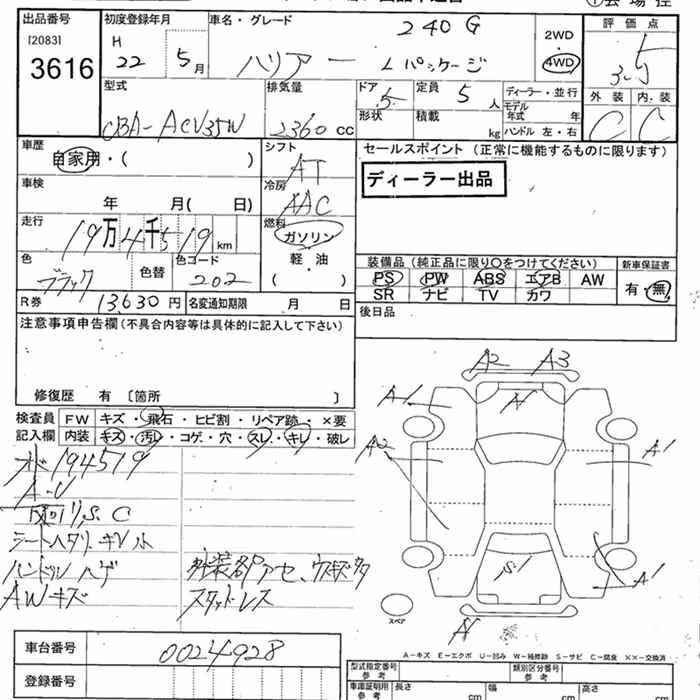 出品番号 初度登録年月 車名・グレード 240G 2WD 評価点
[2083] H 22 5月 ハリアー Lパッケージ 4WD 3.5
3616
型式 排気量 ドア 5 定員 5人 ディーラー・並行 外装 内装
モデル年式 年
CBA-ACU35W 2360cc 形状 積載 kg ハンドル 左・右 C C
車歴 シフト セールスポイント (正常に機能するものに限ります)
自家用・( ) AT
ディーラー出品
車検 冷房
年 月( 日) AAC
走行 燃料
19万4千519km ガソリン
色 色替 色コード 軽・油 装備品 (純正品に限り○をつけてください) 新車保証書
ブラック 202 ( ) PS PW ABS エアB AW 有・無
SR ナビ TV カワ
R券 13,630円 名変通知期限 月 日
後日品
注意事項申告欄 (不具合内容等は具体的に記入して下さい)
修復歴 有 〔箇所 〕
検査員 FW キズ・飛石・ヒビ割・リペア跡・×要
記入欄 内装 キズ・汚レ・コゲ・穴・スレ・キレ・破レ
A2 A3
A1
A2 A1
オド194519
A-U
S, C
シートヘタリ・キレ
ハンドルハゲ 外装部Pアセ、ウスキズ多
AWキズ スタッドレス
S1 A1
スペア
A-キズ E-エクボ U-凹み W-補修跡 S-サビ C-腐食 ××-交換済
車台番号 0024928
登録番号
型式指定番号 類別区分番号
車庫証明用 長さ cm 幅 cm 高さ cm
参考